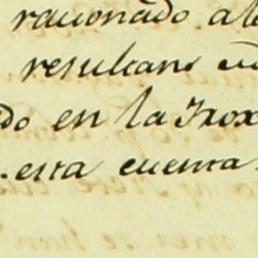 racionado a l
resultans
do en la Trox
esta cuenta